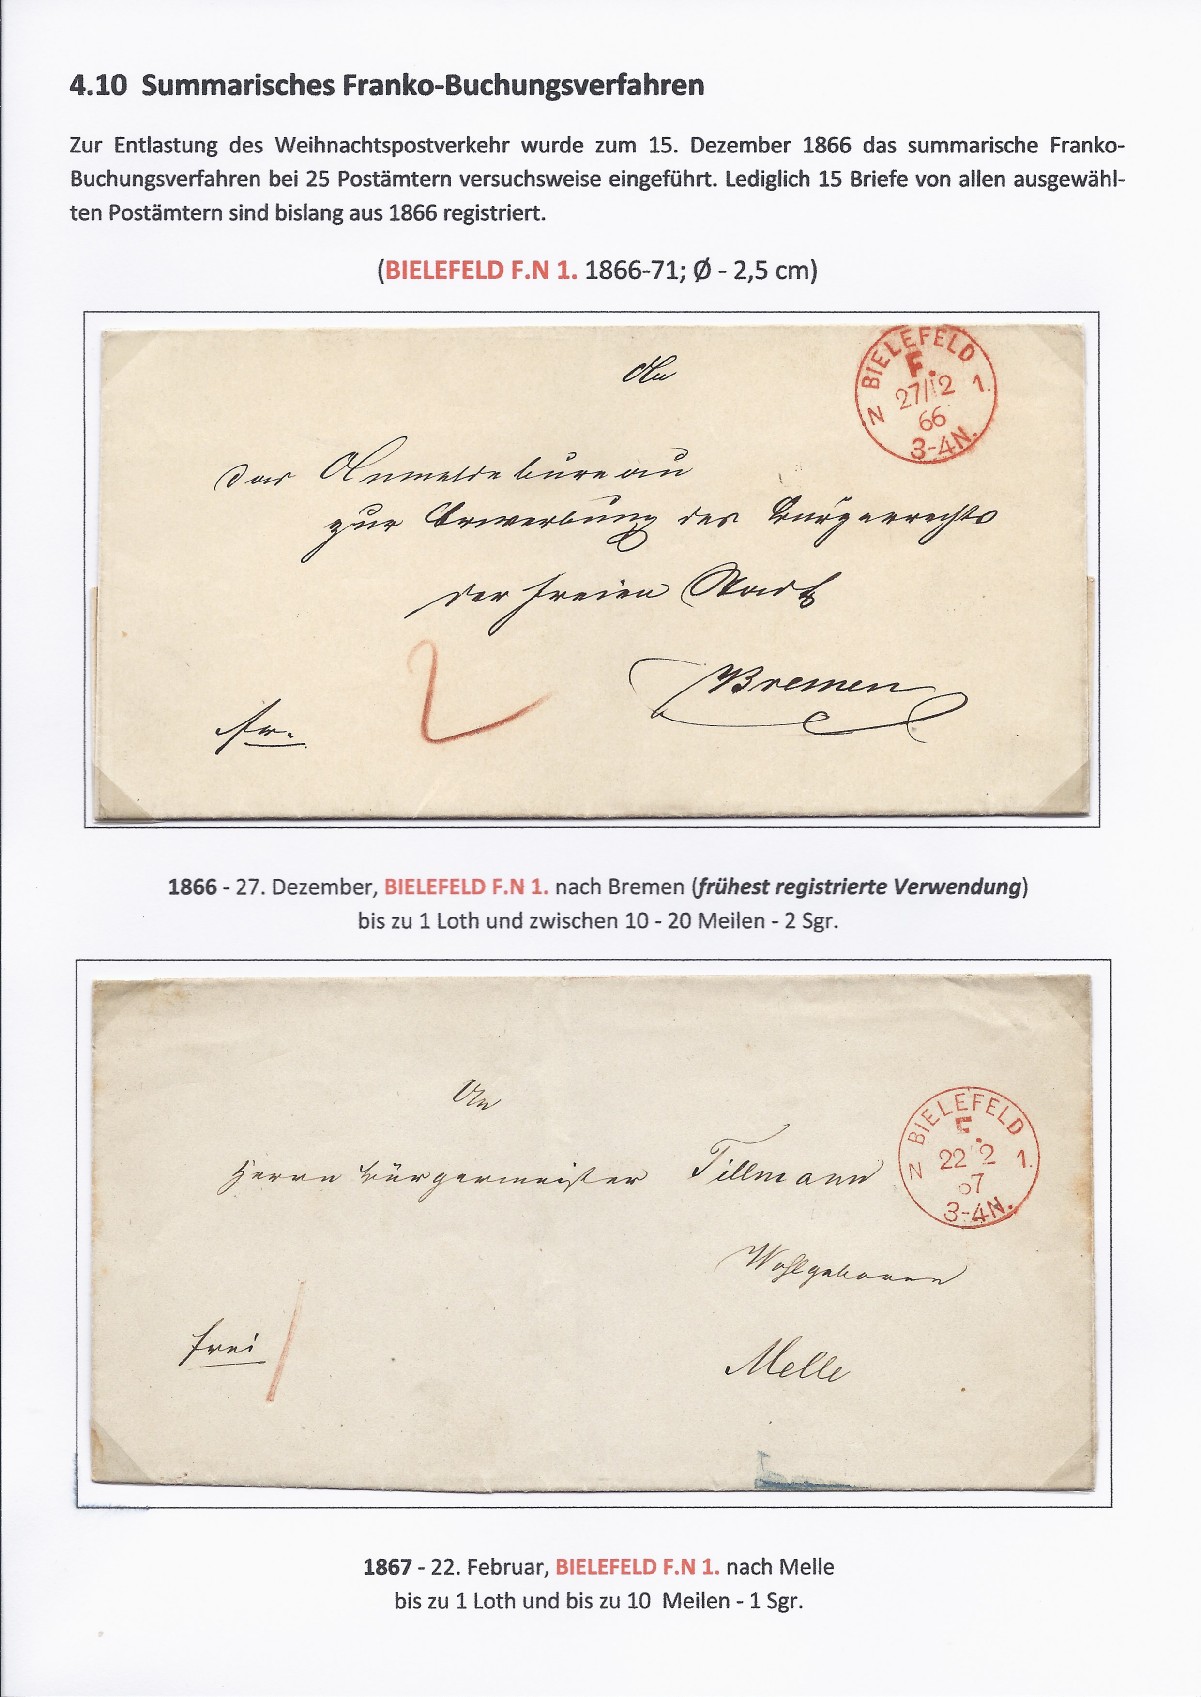 4.10 Summarisches Franko-Buchungsverfahren
Zur Entlastung des Weihnachtspostverkehr wurde zum 15. Dezember 1866 das summarische Franko-
Buchungsverfahren bei 25 Postämtern versuchsweise eingeführt. Lediglich 15 Briefe von allen ausgewähl-
ten Postämtern sind bislang aus 1866 registriert.
(BIELEFELD F.N 1. 1866-71; Ø - 2,5 cm)
An
BIELEFELD
F.
27/12
N 1.
66
3-4N.
das Anmeldebureau
zur Erwerbung des Bürgerrechts
der freien Stadt
2
Bremen
fr.
1866 - 27. Dezember, BIELEFELD F.N 1. nach Bremen (frühest registrierte Verwendung)
bis zu 1 Loth und zwischen 10 - 20 Meilen - 2 Sgr.
An
BIELEFELD
F.
22 2
N 1.
67
3-4N.
Herrn Bürgermeister Tillmann
Wohlgeboren
frei
1
Melle
1867 - 22. Februar, BIELEFELD F.N 1. nach Melle
bis zu 1 Loth und bis zu 10 Meilen - 1 Sgr.